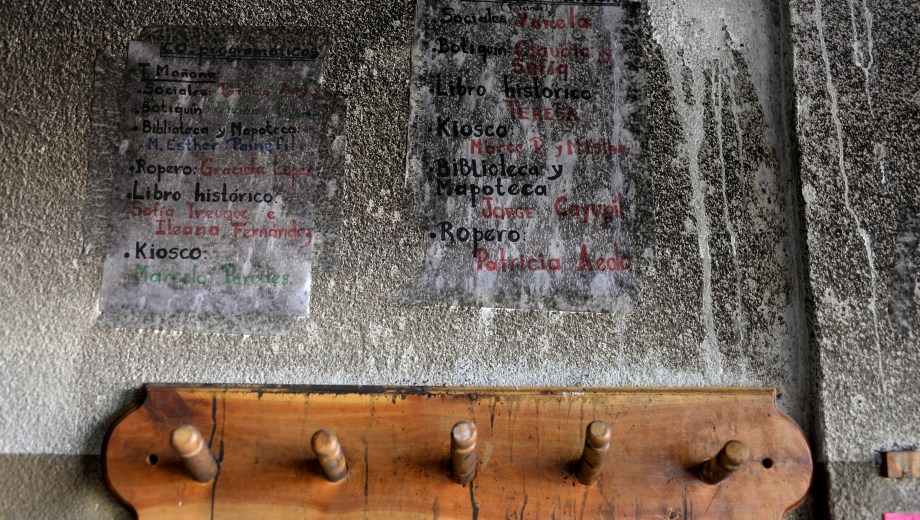 Co-programáticos
T. Mañana
• Sociales:
• Botiquín
• Biblioteca y Mapoteca:
M. Esther Painefil
• Ropero: Graciela López
• Libro histórico:
Sofía Treuque e
Ileana Fernández
• Kiosco:
Marcela Paredes.
• Sociales: Mariela
• Botiquín: Claudia y
Sofía
• Libro histórico
TERESA
• Kiosco:
Marce P. y
• Biblioteca y
Mapoteca
Jorge Cayupil
• Ropero:
Patricia Aedo